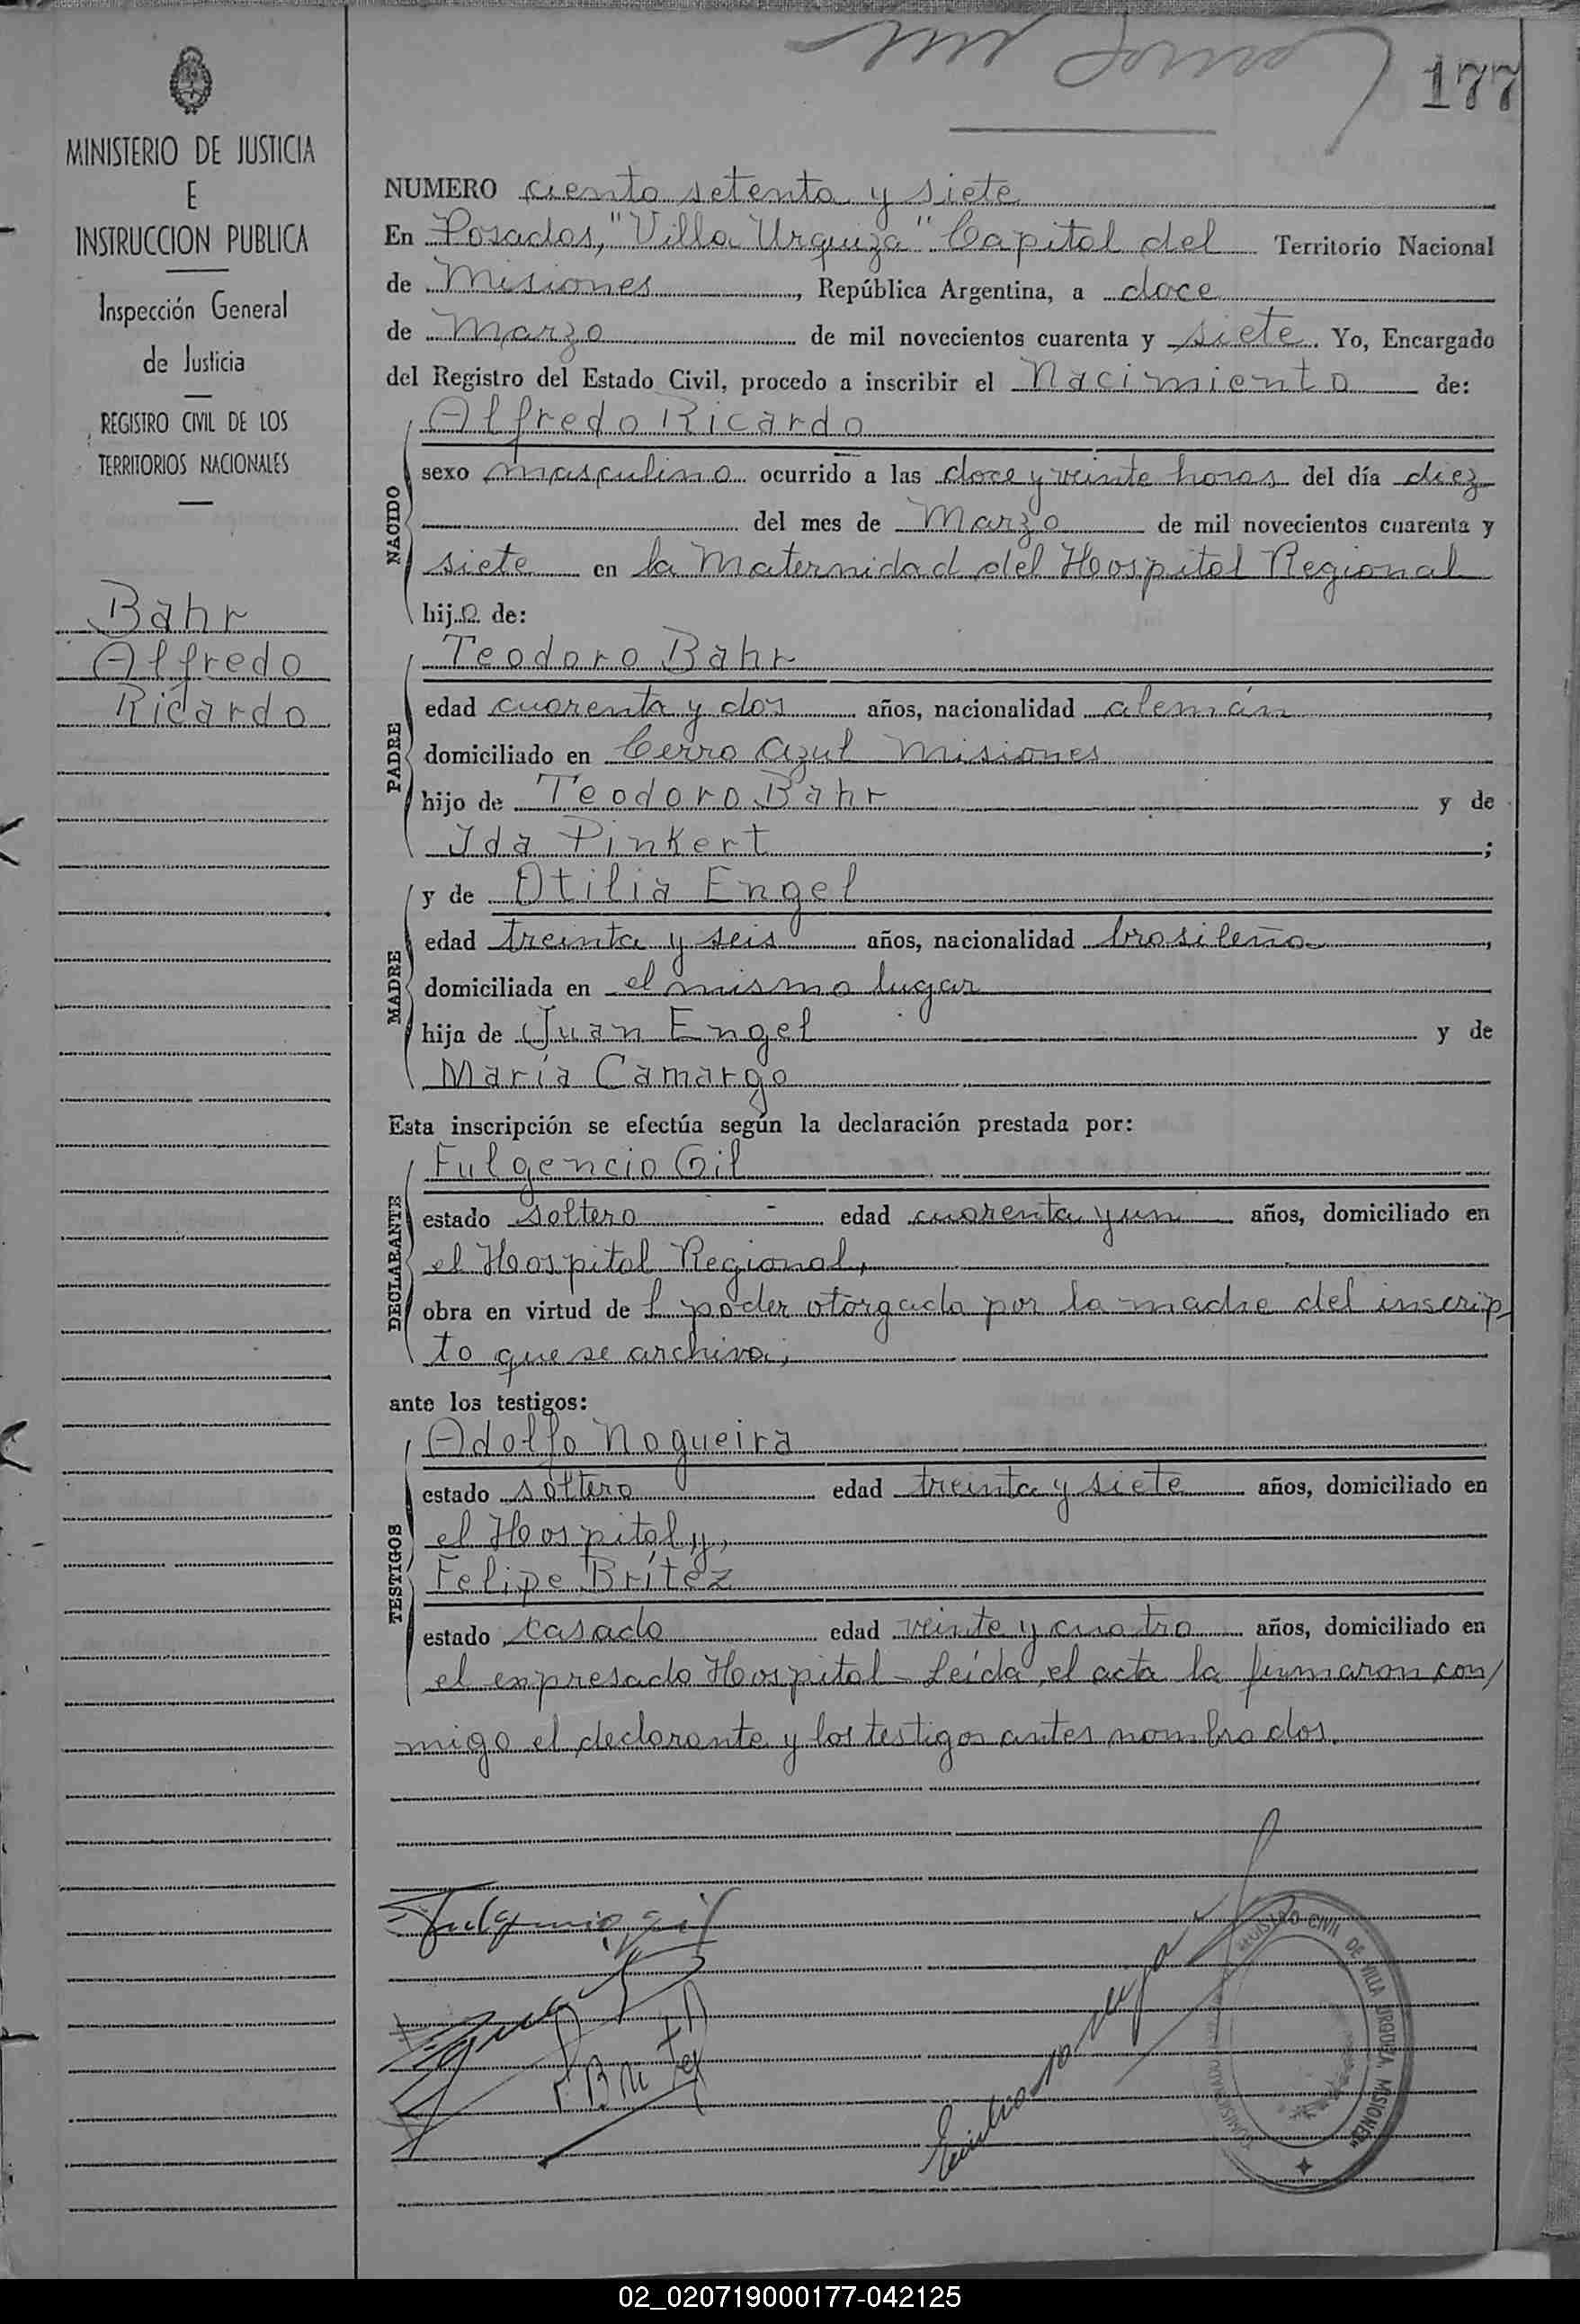 177
MINISTERIO DE JUSTICIA
E
INSTRUCCION PUBLICA
Inspección General
de Justicia
REGISTRO CIVIL DE LOS
TERRITORIOS NACIONALES
Bahr
Alfredo
Ricardo
NUMERO ciento setenta y siete
En Posadas, "Villa Urquiza" Capital del Territorio Nacional
de Misiones, República Argentina, a doce
de Marzo de mil novecientos cuarenta y siete. Yo, Encargado
del Registro del Estado Civil, procedo a inscribir el Nacimiento de:
NACIDO
Alfredo Ricardo
sexo masculino ocurrido a las doce y veinte horas del día diez
del mes de Marzo de mil novecientos cuarenta y
siete en la Maternidad del Hospital Regional
hijo de:
PADRE
Teodoro Bahr
edad cuarenta y dos años, nacionalidad alemán,
domiciliado en Cerro Azul Misiones
hijo de Teodoro Bahr y de
Ida Pinkert;
MADRE
y de Otilia Engel
edad treinta y seis años, nacionalidad brasileña,
domiciliada en el mismo lugar
hija de Juan Engel y de
María Camargo
Esta inscripción se efectúa según la declaración prestada por:
DECLARANTE
Fulgencio Gil
estado soltero edad cuarenta y un años, domiciliado en
el Hospital Regional,
obra en virtud de l poder otorgado por la madre del inscrip
to que se archiva,
ante los testigos:
TESTIGOS
Adolfo Nogueira
estado soltero edad treinta y siete años, domiciliado en
el Hospital y,
Felipe Brítez
estado casado edad veinte y cuatro años, domiciliado en
el expresado Hospital - Leída el acta la firmaron con
migo el declarante y los testigos antes nombrados.
Fulgencio Gil
F. Britez
REGISTRO CIVIL DE VILLA URQUIZA, MISIONES
02_020719000177-042125